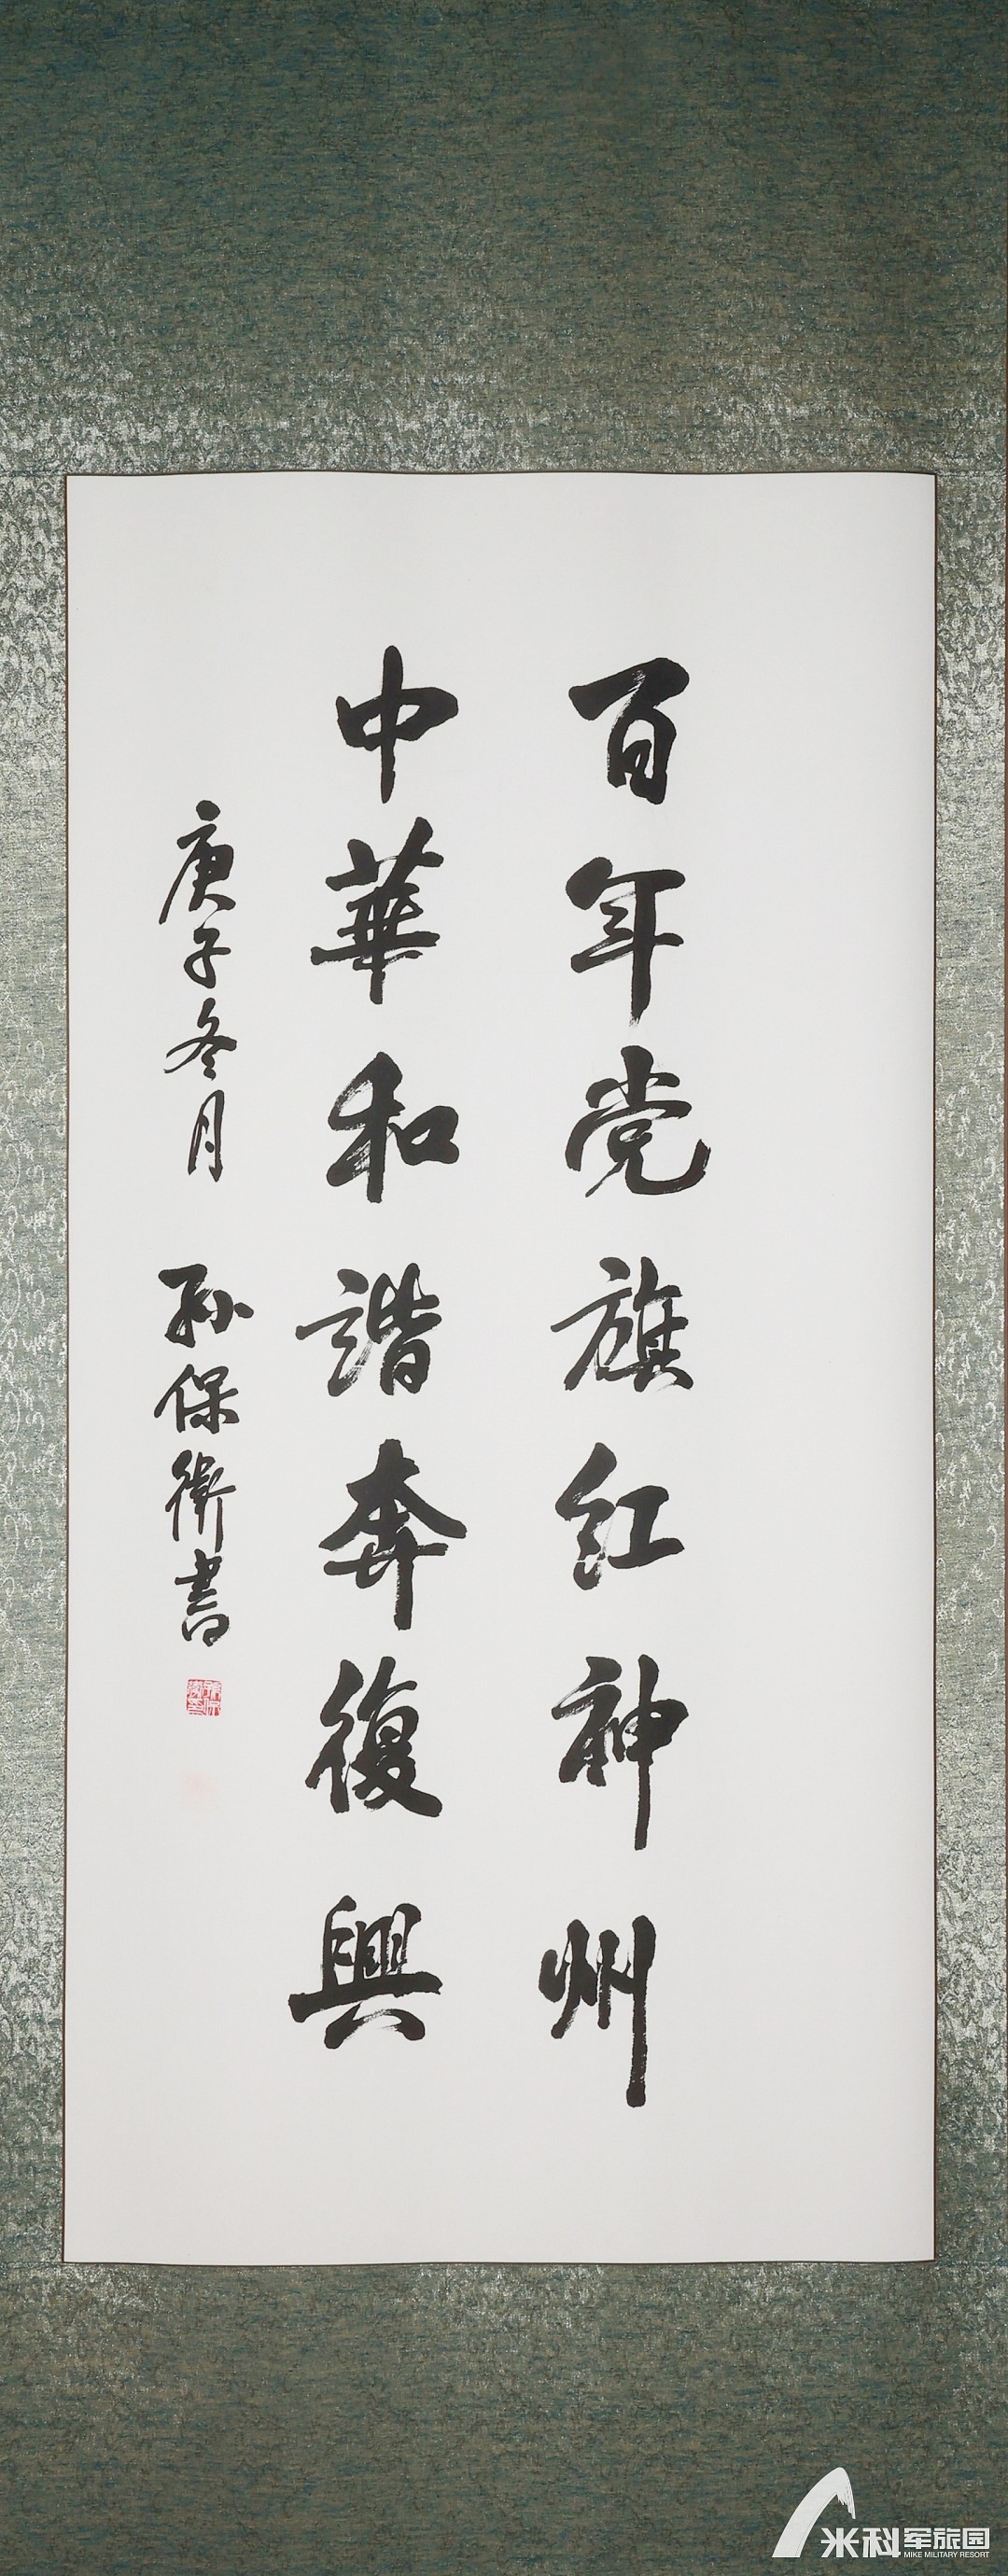 百年党旗红神州
中華和諧奔復興
庚子冬月 孙保衛書
米科军旅园
MIKE MILITARY RESORT